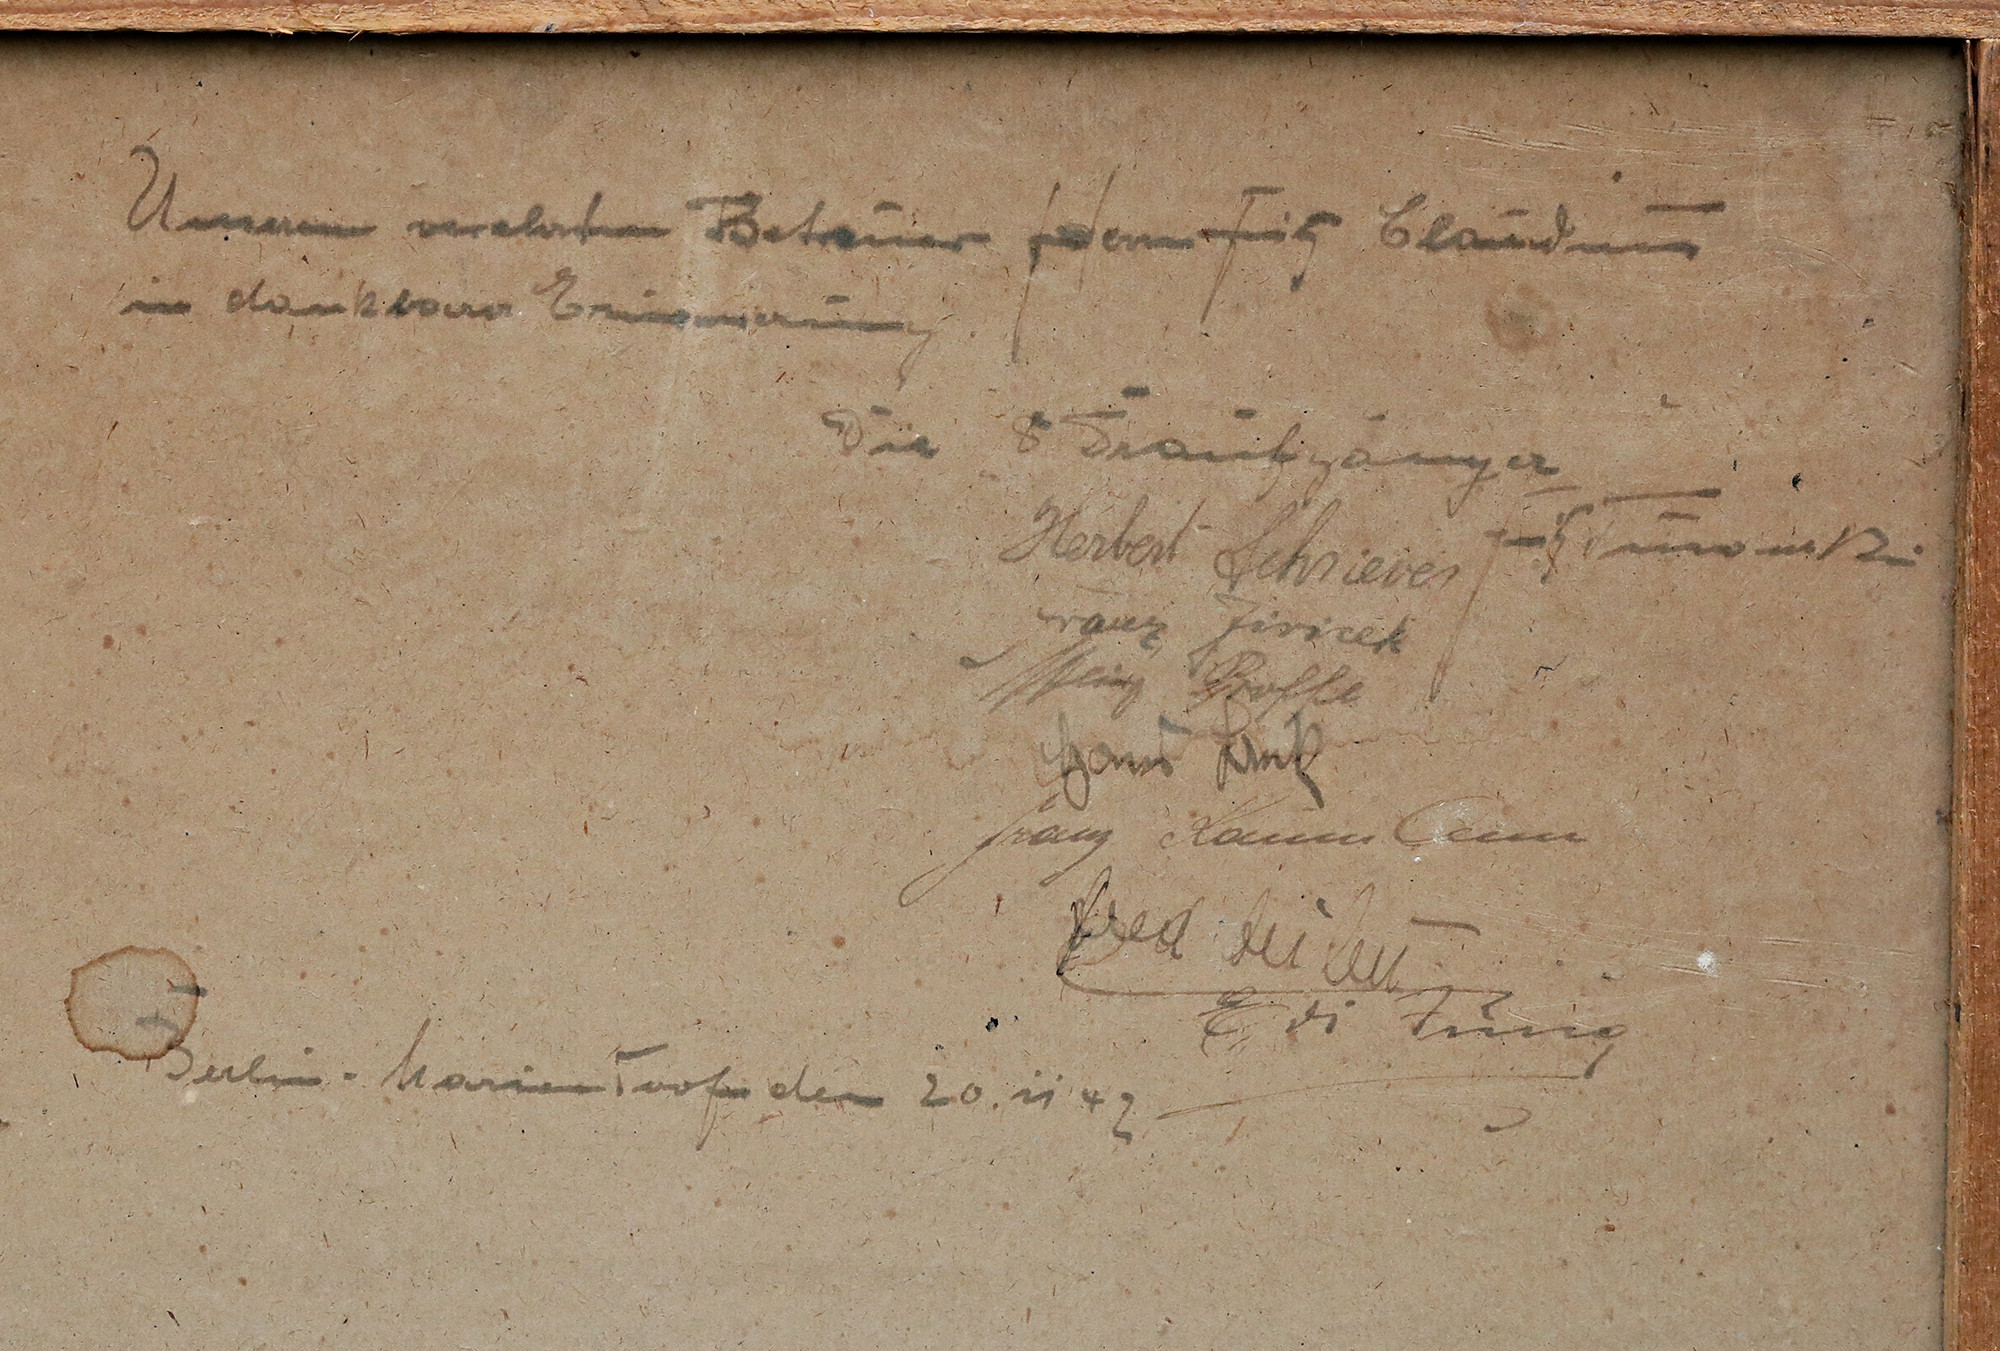 Unserem verehrten Betreuer Herrn Fritz Claudius
in dankbarer Erinnerung
Die 8 Draufgänger
Herbert Schriever
Franz Jiricek
Heinz
Hans
Franz
Fred
Edi Jung
Berlin-Mariendorf den 20. 11 42